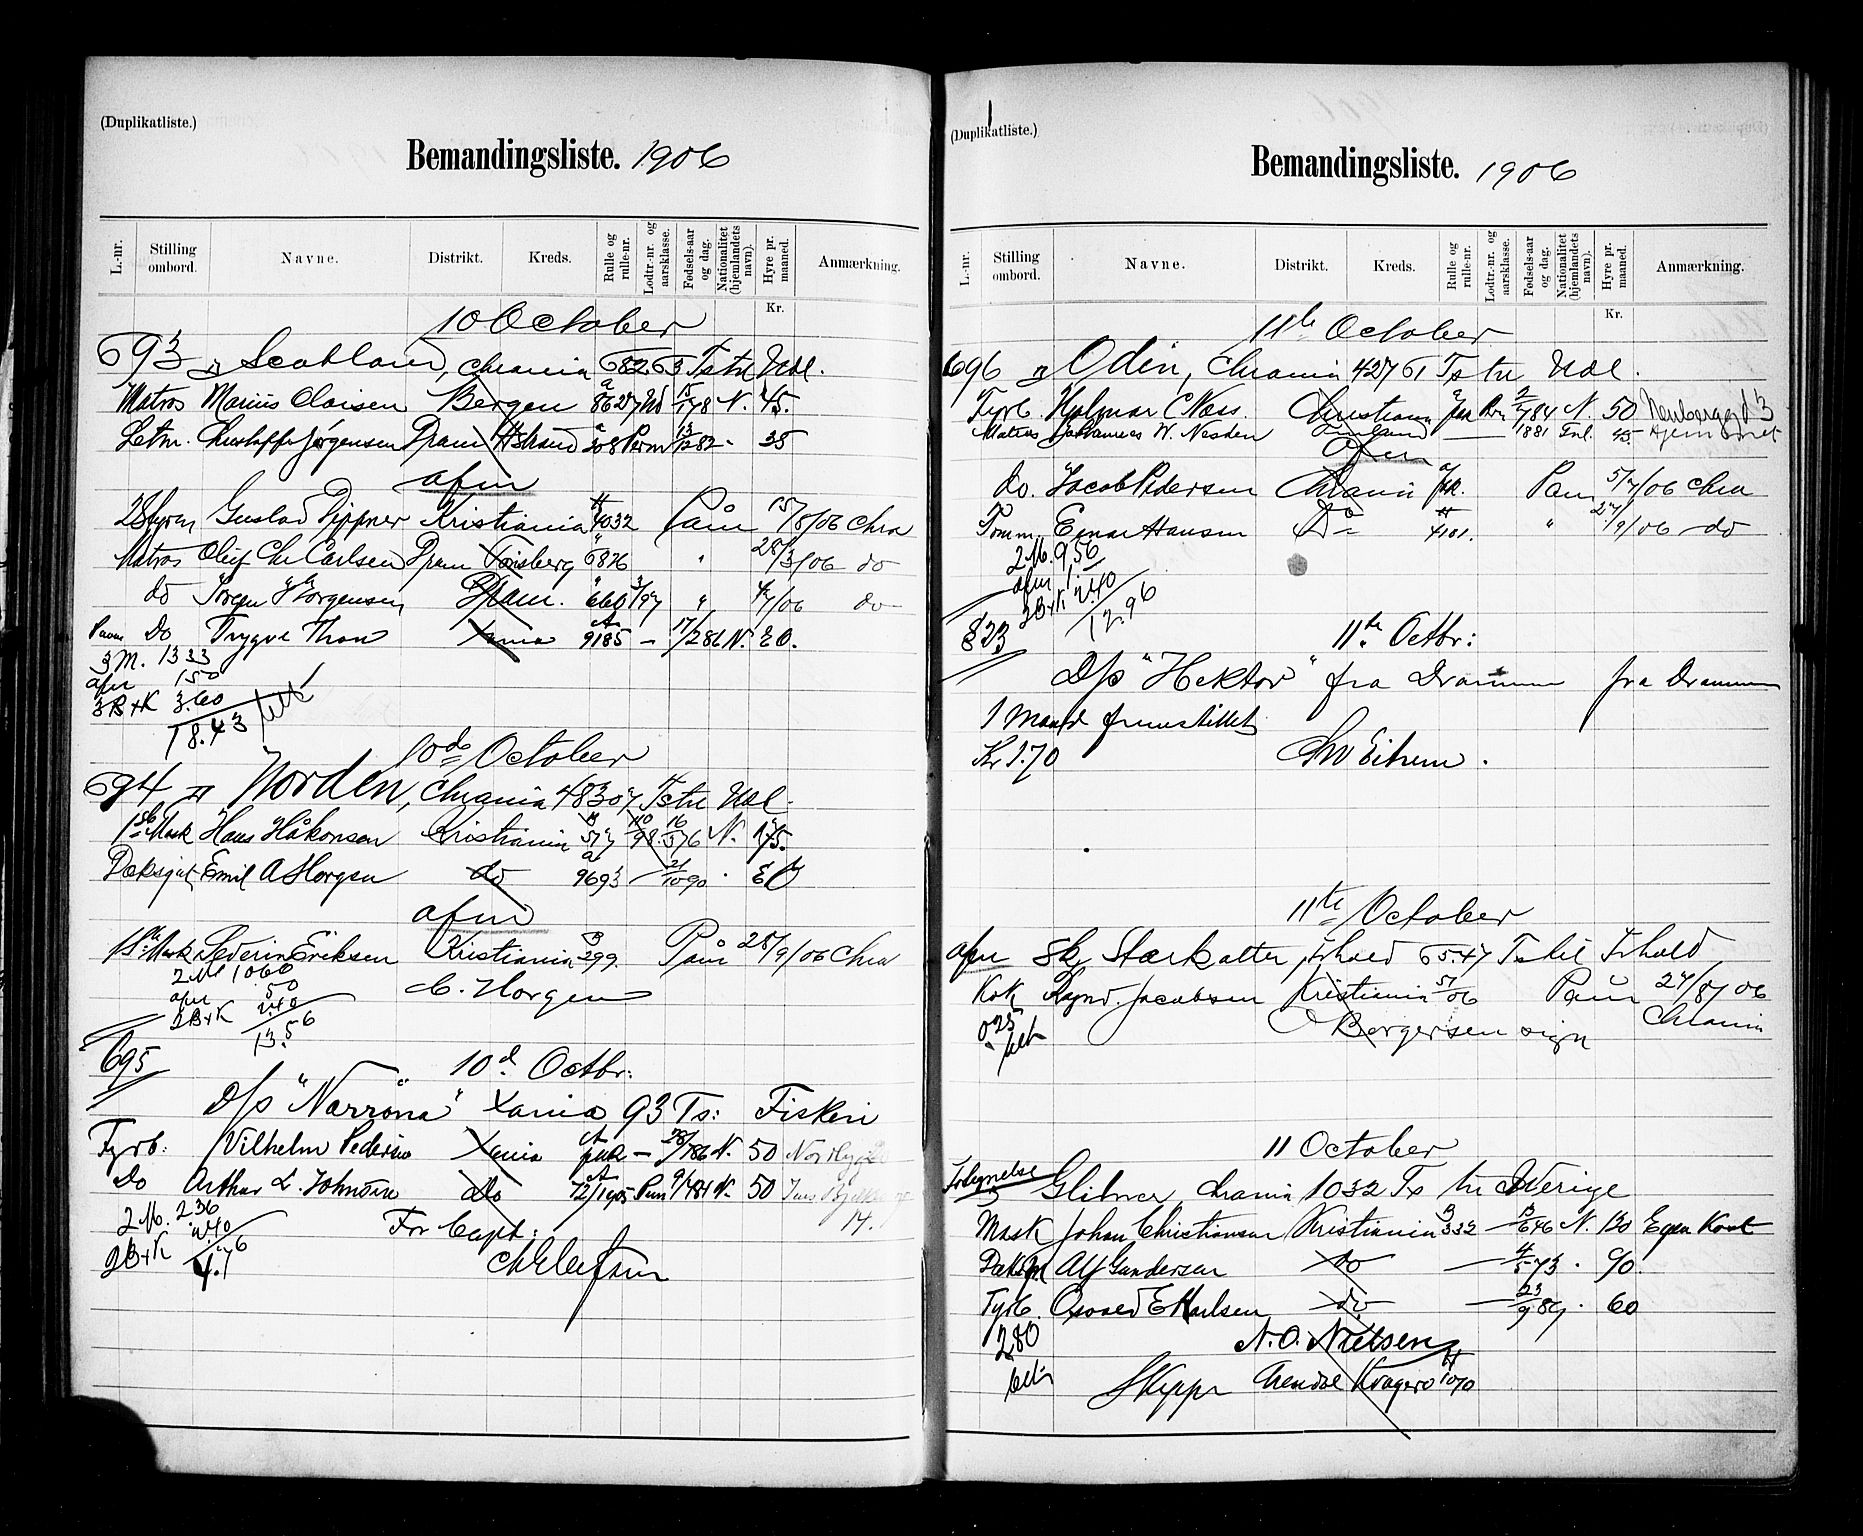 (Duplikatliste.)
Bemandingsliste. 1906
L.-nr. Stilling ombord. Navne. Distrikt. Kreds. Rulle og rulle-nr. Lodtr.-nr. og aarsklasse. Fødsels-aar og dag. Nationalitet (hjemlandets navn). Hyre pr. maaned. Anmærkning.
Kr.
10 October
693 Scotland, Chrania 682.63 Ts tr Udl.
Matros Marius Claisen Bergen a 8627 15/1 78 N. 45.
Letm. Gustaff Jørgensen Dram Hstrand a 208 Perm 13/2 82 - 35
afm
2 Styrm Gustav Pippner Kristiania 4032 Paam 15/8/06 Chra
Matros Oluf Chr Carlsen Dram Tønsberg 6826 " 28/3/06 do
do Jörgen Jörgensen Dram. 660 3/97 " 4/7/06 do
Paam Do Trygve Thon Xania A 9185 - 17/2 86 N. E O.
3 M. 13 33
afm 1 50
3 B+K 3.60
18.43
10de October
694 Norden, Chrania 483.07 Ts tr Udl.
1ste Mask Hans Håkonsen Kristiania B 577 110/98 16/5 76 N. 175.
Dæksgut Emil A Horgen do a 9693 21/10 90 . E O
afm
1ste Mask Severin Eriksen Kristiania B 299. Paam 25/9/06 Chra
2 M 10.60
afm 50 C. Horgen
2 B+K 2.40
13.56
695 10d. Octbr:
D/s "Norrøna" Xania 93 Ts: Fiskeri
Fyrb: Vilhelm Pedersen Xania A - 28/7 86 N. 50
Do Arthur L. Johnsen Do A 72/1905 Paam 9/4 84 N. 50
14.
2 M. 2.36 For Capt:
2 B+K 2.40
4.76
(Duplikatliste.)
Bemandingsliste. 1906
L.-nr. Stilling ombord. Navne. Distrikt. Kreds. Rulle og rulle-nr. Lodtr.-nr. og aarsklasse. Fødsels-aar og dag. Nationalitet (hjemlandets navn). Hyre pr. maaned. Anmærkning.
Kr.
11te October
696 Odin, Chrania 427 61 Ts tr Udl.
Fyrb. Hjalmar C Næss. Christiania 2/7 84 N. 50
Matros Johannes W. Nesden Finland — 1881 Fnl. 45.
afm
do. Jacob Pedersen Chrania Paam 5/7/06 Chra
Tømm Einar Hansen Do 4101. " 27/9/06 do
2 M. 9.56
afm 1.
2 B+K 2.40
12.96
823 11te Octbr:
D/s "Hektor" fra Drammen fra Drammen
1 Mand
Kr 1.70 Eitrem.
11te October
afm Sk Stærkatter, 65.47 Ts til
Kok Ragnv. Jacobsen Kristiania 57/06 Paam 27/8/06
0.25 O Bergersen sign Chrania
11 October
Glitner, Chrania 1032 Ts tr Sverige
Mask Johan Christiansen Kristiania B 332 — 13/6 46 N. 130 Egen Kost
Dæksm Alf Gundersen do — 4/5 73 . 90.
Fyrb. Osvald E Karlsen do — 23/9 87 . 60
2.80 N. O. Nielsen
Skipper Arendal Kragerø 1070